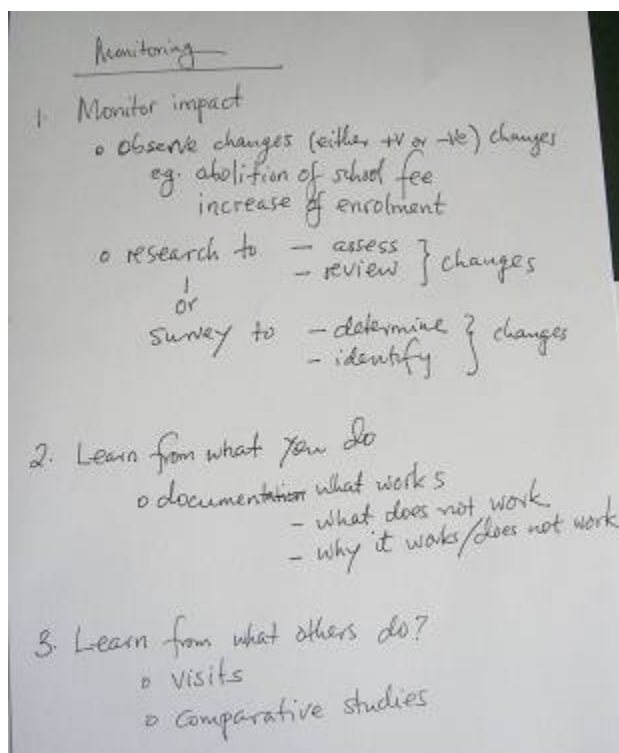 Monitoring
1. Monitor impact
o observe changes (either +v or -ve) changes
eg. abolition of school fee
increase of enrolment
o research to - assess
- review } changes
or
survey to - determine
- identify } changes
2. Learn from what you do
o documentation what works
- what does not work
- why it works/does not work
3. Learn from what others do?
o visits
o comparative studies